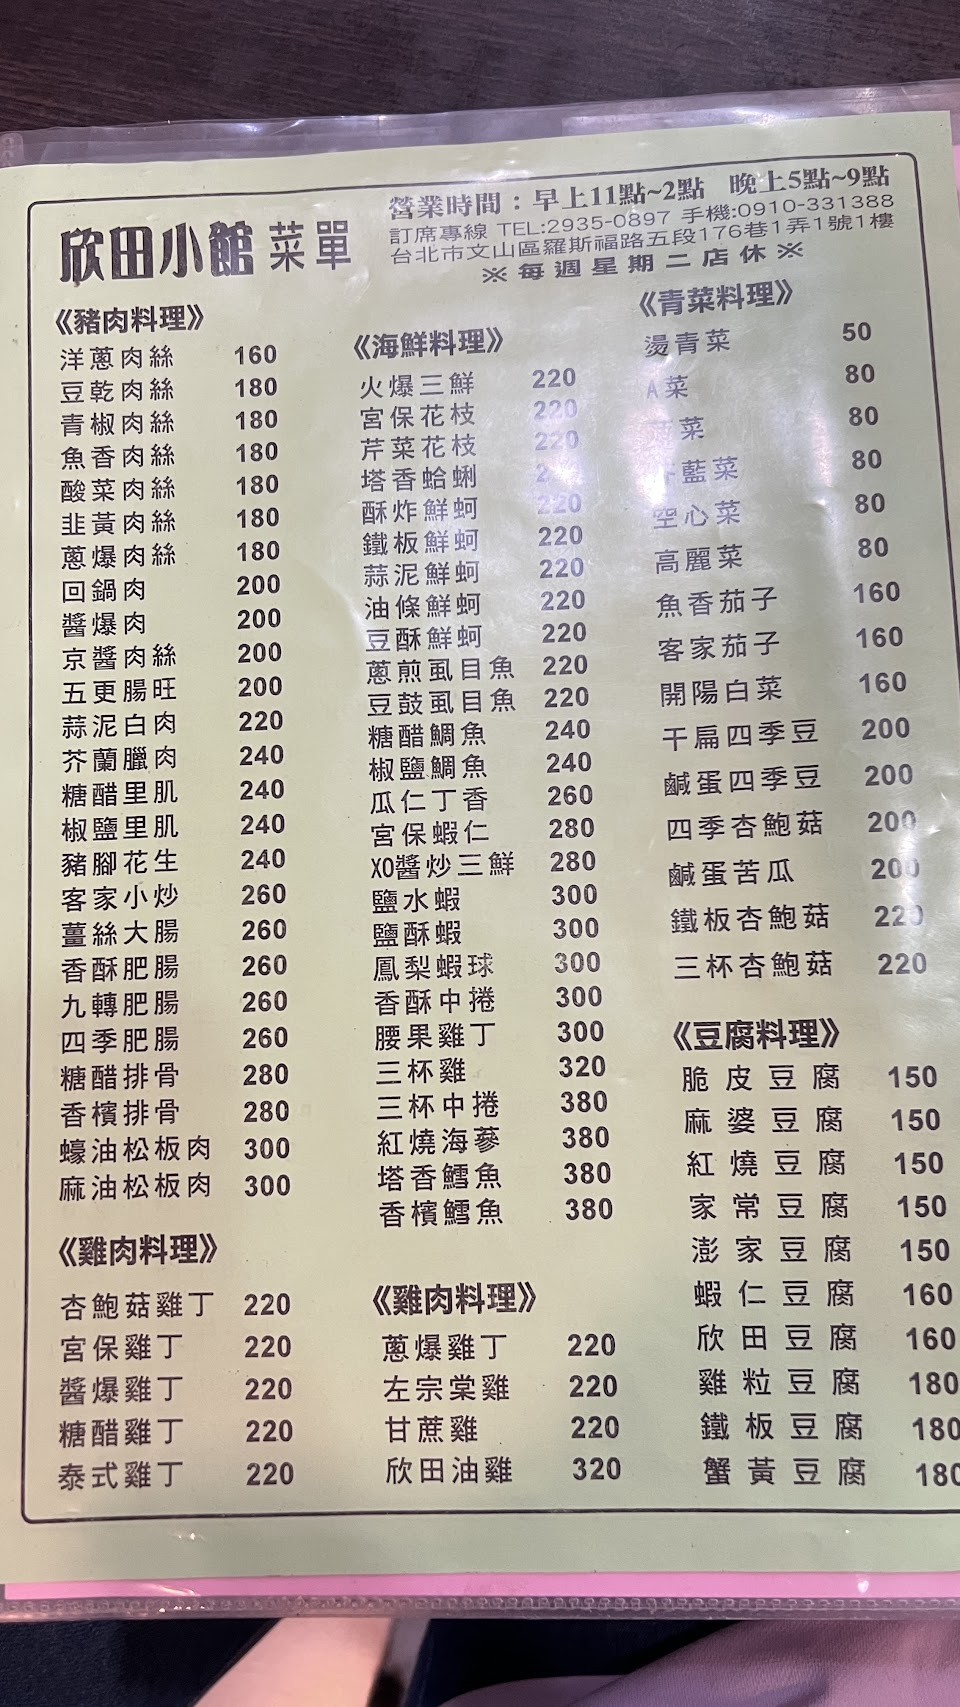 欣田小館 菜單
營業時間：早上11點~2點 晚上5點~9點
訂席專線 TEL:2935-0897 手機:0910-331388
台北市文山區羅斯福路五段176巷1弄1號1樓
※每週星期二店休※
《豬肉料理》
洋蔥肉絲 160
豆乾肉絲 180
青椒肉絲 180
魚香肉絲 180
酸菜肉絲 180
韭黃肉絲 180
蔥爆肉絲 180
回鍋肉 200
醬爆肉 200
京醬肉絲 200
五更腸旺 200
蒜泥白肉 220
芥蘭臘肉 240
糖醋里肌 240
椒鹽里肌 240
豬腳花生 240
客家小炒 260
薑絲大腸 260
香酥肥腸 260
九轉肥腸 260
四季肥腸 260
糖醋排骨 280
香檳排骨 280
蠔油松板肉 300
麻油松板肉 300
《雞肉料理》
杏鮑菇雞丁 220
宮保雞丁 220
醬爆雞丁 220
糖醋雞丁 220
泰式雞丁 220
《海鮮料理》
火爆三鮮 220
宮保花枝 220
芹菜花枝 220
塔香蛤蜊
酥炸鮮蚵 220
鐵板鮮蚵 220
蒜泥鮮蚵 220
油條鮮蚵 220
豆酥鮮蚵 220
蔥煎虱目魚 220
豆鼓虱目魚 220
糖醋鯛魚 240
椒鹽鯛魚 240
瓜仁丁香 260
宮保蝦仁 280
XO醬炒三鮮 280
鹽水蝦 300
鹽酥蝦 300
鳳梨蝦球 300
香酥中捲 300
腰果雞丁 300
三杯雞 320
三杯中捲 380
紅燒海蔘 380
塔香鱈魚 380
香檳鱈魚 380
《雞肉料理》
蔥爆雞丁 220
左宗棠雞 220
甘蔗雞 220
欣田油雞 320
《青菜料理》
燙青菜 50
A菜 80
菜 80
藍菜 80
空心菜 80
高麗菜 80
魚香茄子 160
客家茄子 160
開陽白菜 160
干扁四季豆 200
鹹蛋四季豆 200
四季杏鮑菇 200
鹹蛋苦瓜 200
鐵板杏鮑菇 220
三杯杏鮑菇 220
《豆腐料理》
脆皮豆腐 150
麻婆豆腐 150
紅燒豆腐 150
家常豆腐 150
澎家豆腐 150
蝦仁豆腐 160
欣田豆腐 160
雞粒豆腐 180
鐵板豆腐 180
蟹黃豆腐 180